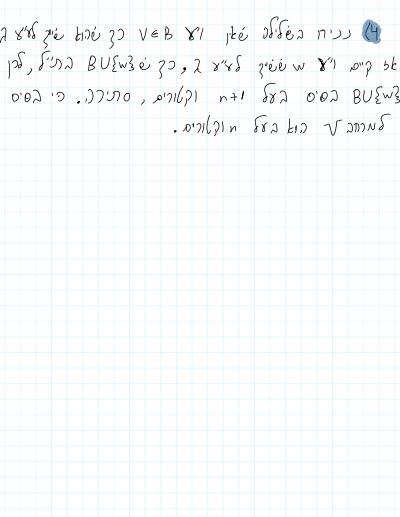 (4 נניח בשלילה שאין ו"ע v∈B כך שהוא שייך לע"ע λ
אז קיים ו"ע w ששייך לע"ע λ, כך ש B∪{w} בת"ל, לכן
B∪{w} בסיס בעל n+1 וקטורים, סתירה. כי בסיס
למרחב V הוא בעל n וקטורים.